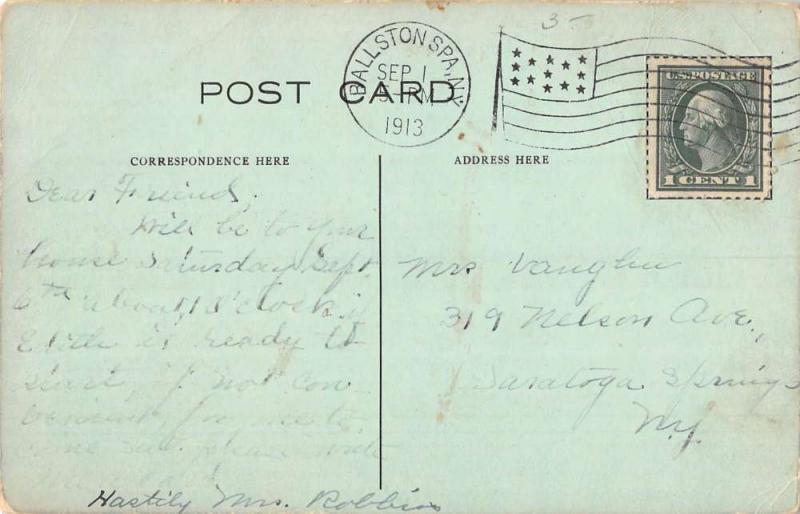 3-
BALLSTON SPA, N.Y.
SEP 1
5-PM
1913
U.S. POSTAGE
1 CENT 1
POST CARD
CORRESPONDENCE HERE
ADDRESS HERE
Dear Friend,
Will be to your
house Saturday Sept.
6th about 1 o'clock if
is ready to
start, if not con-
venient for me to
come please write
Hastily Mrs. Robbins
Mrs Vaughn
319 Nelson Ave,
Saratoga Springs
N.Y.